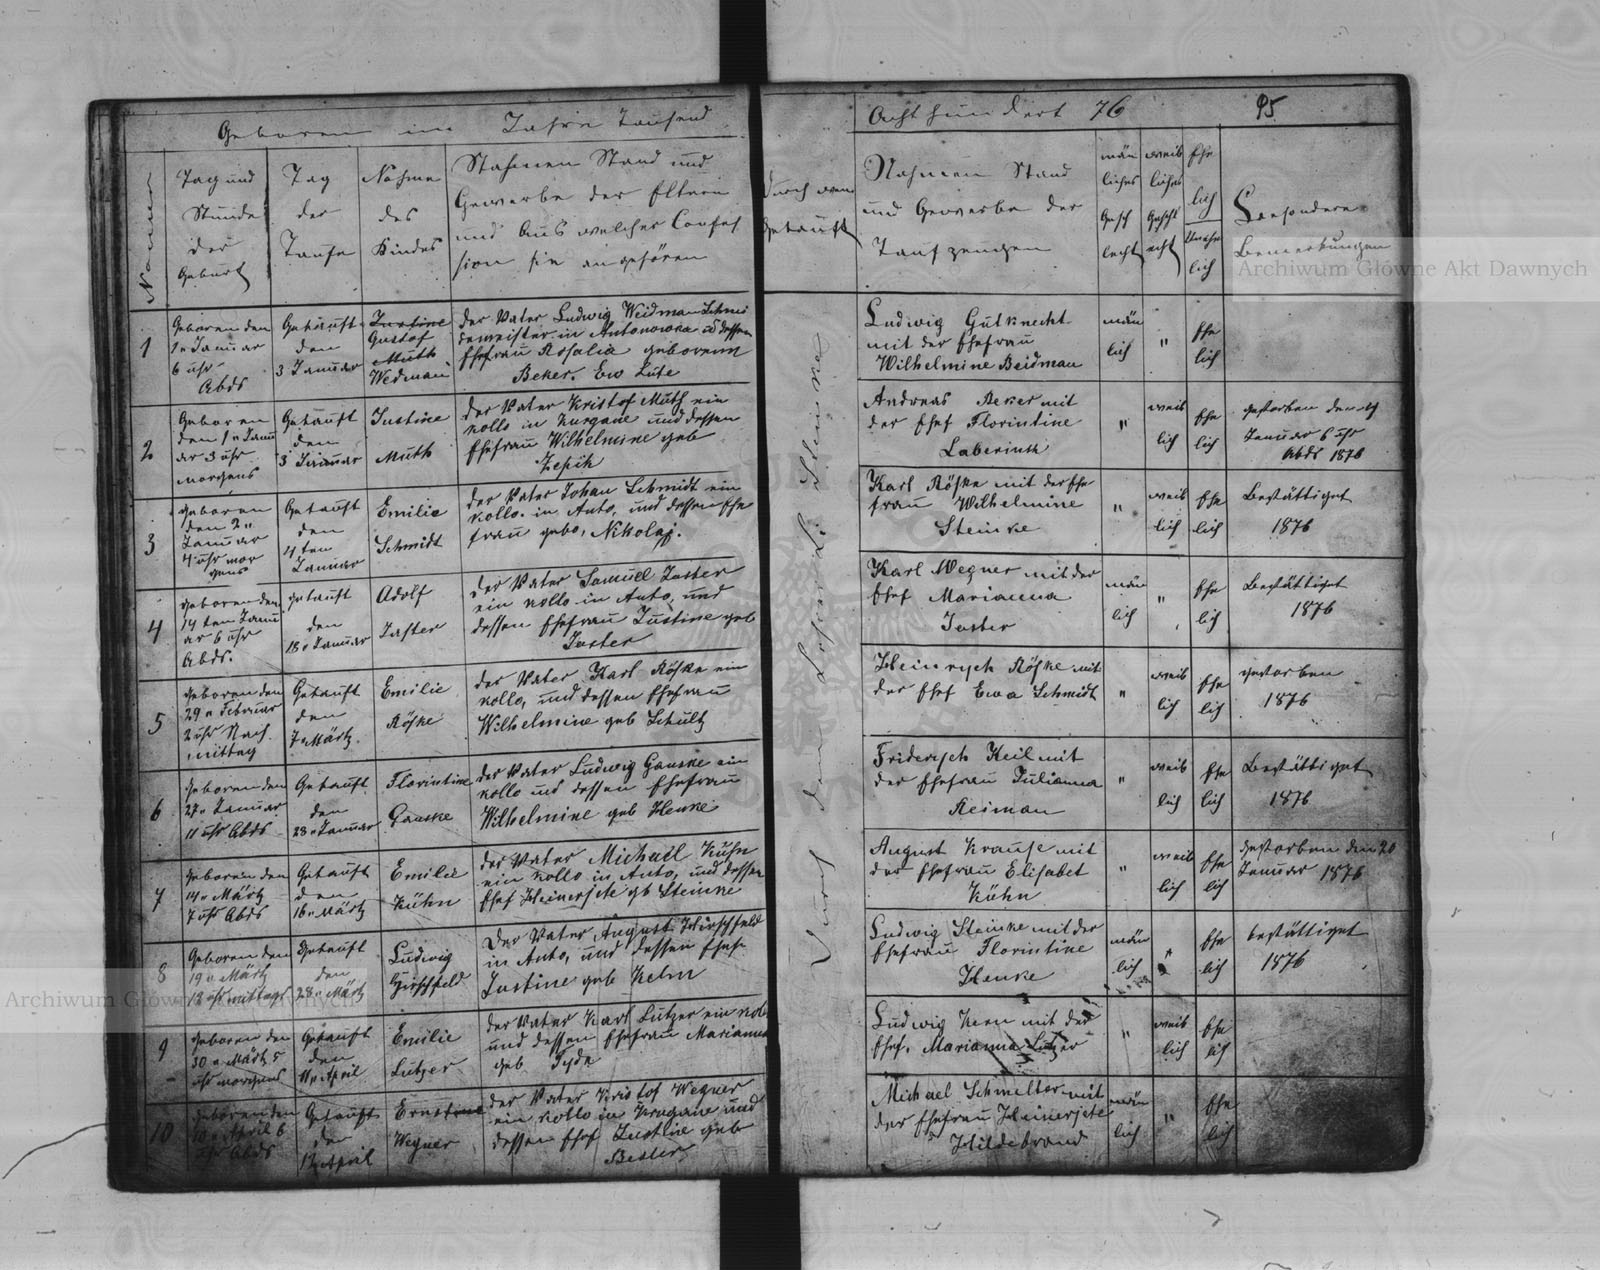 Geboren im Jahre Tausend
Achthundert 76
95
Nomer
Tag und
Stunde
der
Geburt
Tag
der
Taufe
Nahme
des
Kindes
Nahmen Stand und
Gewerbe der Eltern
und Aus welcher Confes
sion sie angehören
Durch wem
Getauft
Nahmen Stand
und Gewerbe der
Taufzeugen
män
liches
Gesch
lecht
weib
liches
Geschl
echt
Ehe
lich
Unehe
lich
Besondere
Bemerkungen
Durch dem
Steinke
1
Geboren den
1 " Januar
6 uhr
Abds
Getauft
den
3 Januar
Justine
Gustof
Muth
Wedman
der Vater Ludwig Weidman Schmi
demeister in Antonowka u dessen
Ehefrau Rosalia geborenn
Beker. Ew Lute
Ludwig Gutknecht
mit der Ehefrau
Wilhelmine Beidman
män
lich
"
Ehe
lich
2
Geboren
den 1 " Janu
ar 3 uhr
morgens
Getauft
den
3 Januar
Justine
Muth
der Vater Kristof Muth ein
kollo in Kurgane und dessen
Ehefrau Wilhelmine geb
Zepik
Andreas Beker mit
der Ehef Florintine
Laberinth
"
weib
lich
Ehe
lich
gestorben den 4
Januar 6 uhr
Abds 1876
3
geboren
den 2 "
Januar
4 uhr mor
gens
Getauft
den
4 ten
Januar
Emilie
Schmidt
der Vater Johan Schmidt ein
kollo. in Anto, und dessen Ehe
frau gebo, Nikolaj.
Karl Röske mit der Ehe
frau Wilhelmine
Steinke
"
weib
lich
Ehe
lich
Bestättiget
1876
4
geboren den
14 ten Janu
ar 6 uhr
Abds.
getauft
den
18 " Januar
Adolf
Jaster
der Vater Samuel Jaster
ein kollo in Anto, und
dessen Ehefrau Justine geb
Jaster
Karl Wegner mit der
Ehef Marianna
Jaster
män
lich
"
Ehe
lich
Bestättiget
1876
5
geboren den
29 " Februar
2 uhr Nach
mittag
Getauft
den
7 " Märtz
Emilie
Röske
der Vater Karl Röske ein
kollo, und dessen Ehefrau
Wilhelmine geb Schultz
Heinrych Röske mit
der Ehef Ewa Schmidt
"
weib
lich
Ehe
lich
gestorben
1876
6
geboren den
27 " Januar
11 uhr Abds
Getauft
den
28 " Januar
Florintine
Ganske
der Vater Ludwig Ganske ein
kollo und dessen Ehefrau
Wilhelmine geb Henke
Friderych Keil mit
der Ehefrau Julianna
Reiman
"
weib
lich
Ehe
lich
Bestättiget
1876
7
geboren den
14 " Märtz
7 uhr Abds
Getauft
den
16 " Märtz
Emilie
Kühn
der Vater Michael Kühn
ein kollo in Anto, und dessen
Ehef Heinerjete gb Steinke
August Krause mit
der Ehefrau Elisabet
Kühn
"
weib
lich
Ehe
lich
gestorben den 20
Januar 1876
8
Geboren den
19 " Märtz
12 uhr mittags
Getauft
den
28 " Märtz
Ludwig
Hirschfeld
Der Vater August Hirschfeld
in Anto, und dessen Ehef
Justine geb Kelm
Ludwig Steinke mit der
Ehefrau Florintine
Henke
män
lich
"
Ehe
lich
bestättiget
1876
9
geboren den
30 " Märtz 5
uhr morgens
Getauft
den
11 " April
Emilie
Lutzer
der Vater Karl Lutzer ein kolo
und dessen Ehefrau Marianna
geb Tyde
Ludwig Kern mit der
Ehef. Marianna Lutzer
"
weib
lich
Ehe
lich
10
geboren den
10 " April 6
uhr Abds
Getauft
den
17 April
Ernstine
Wegner
der Vater Kristof Wegner
ein kollo in Krugane und
dessen Ehef Justine geb
Bester
Michael Schmelter mit
der Ehefrau Heinerjete
Hildebrand
män
lich
"
Ehe
lich
Archiwum Główne Akt Dawnych
Archiwum Główne Akt Dawnych